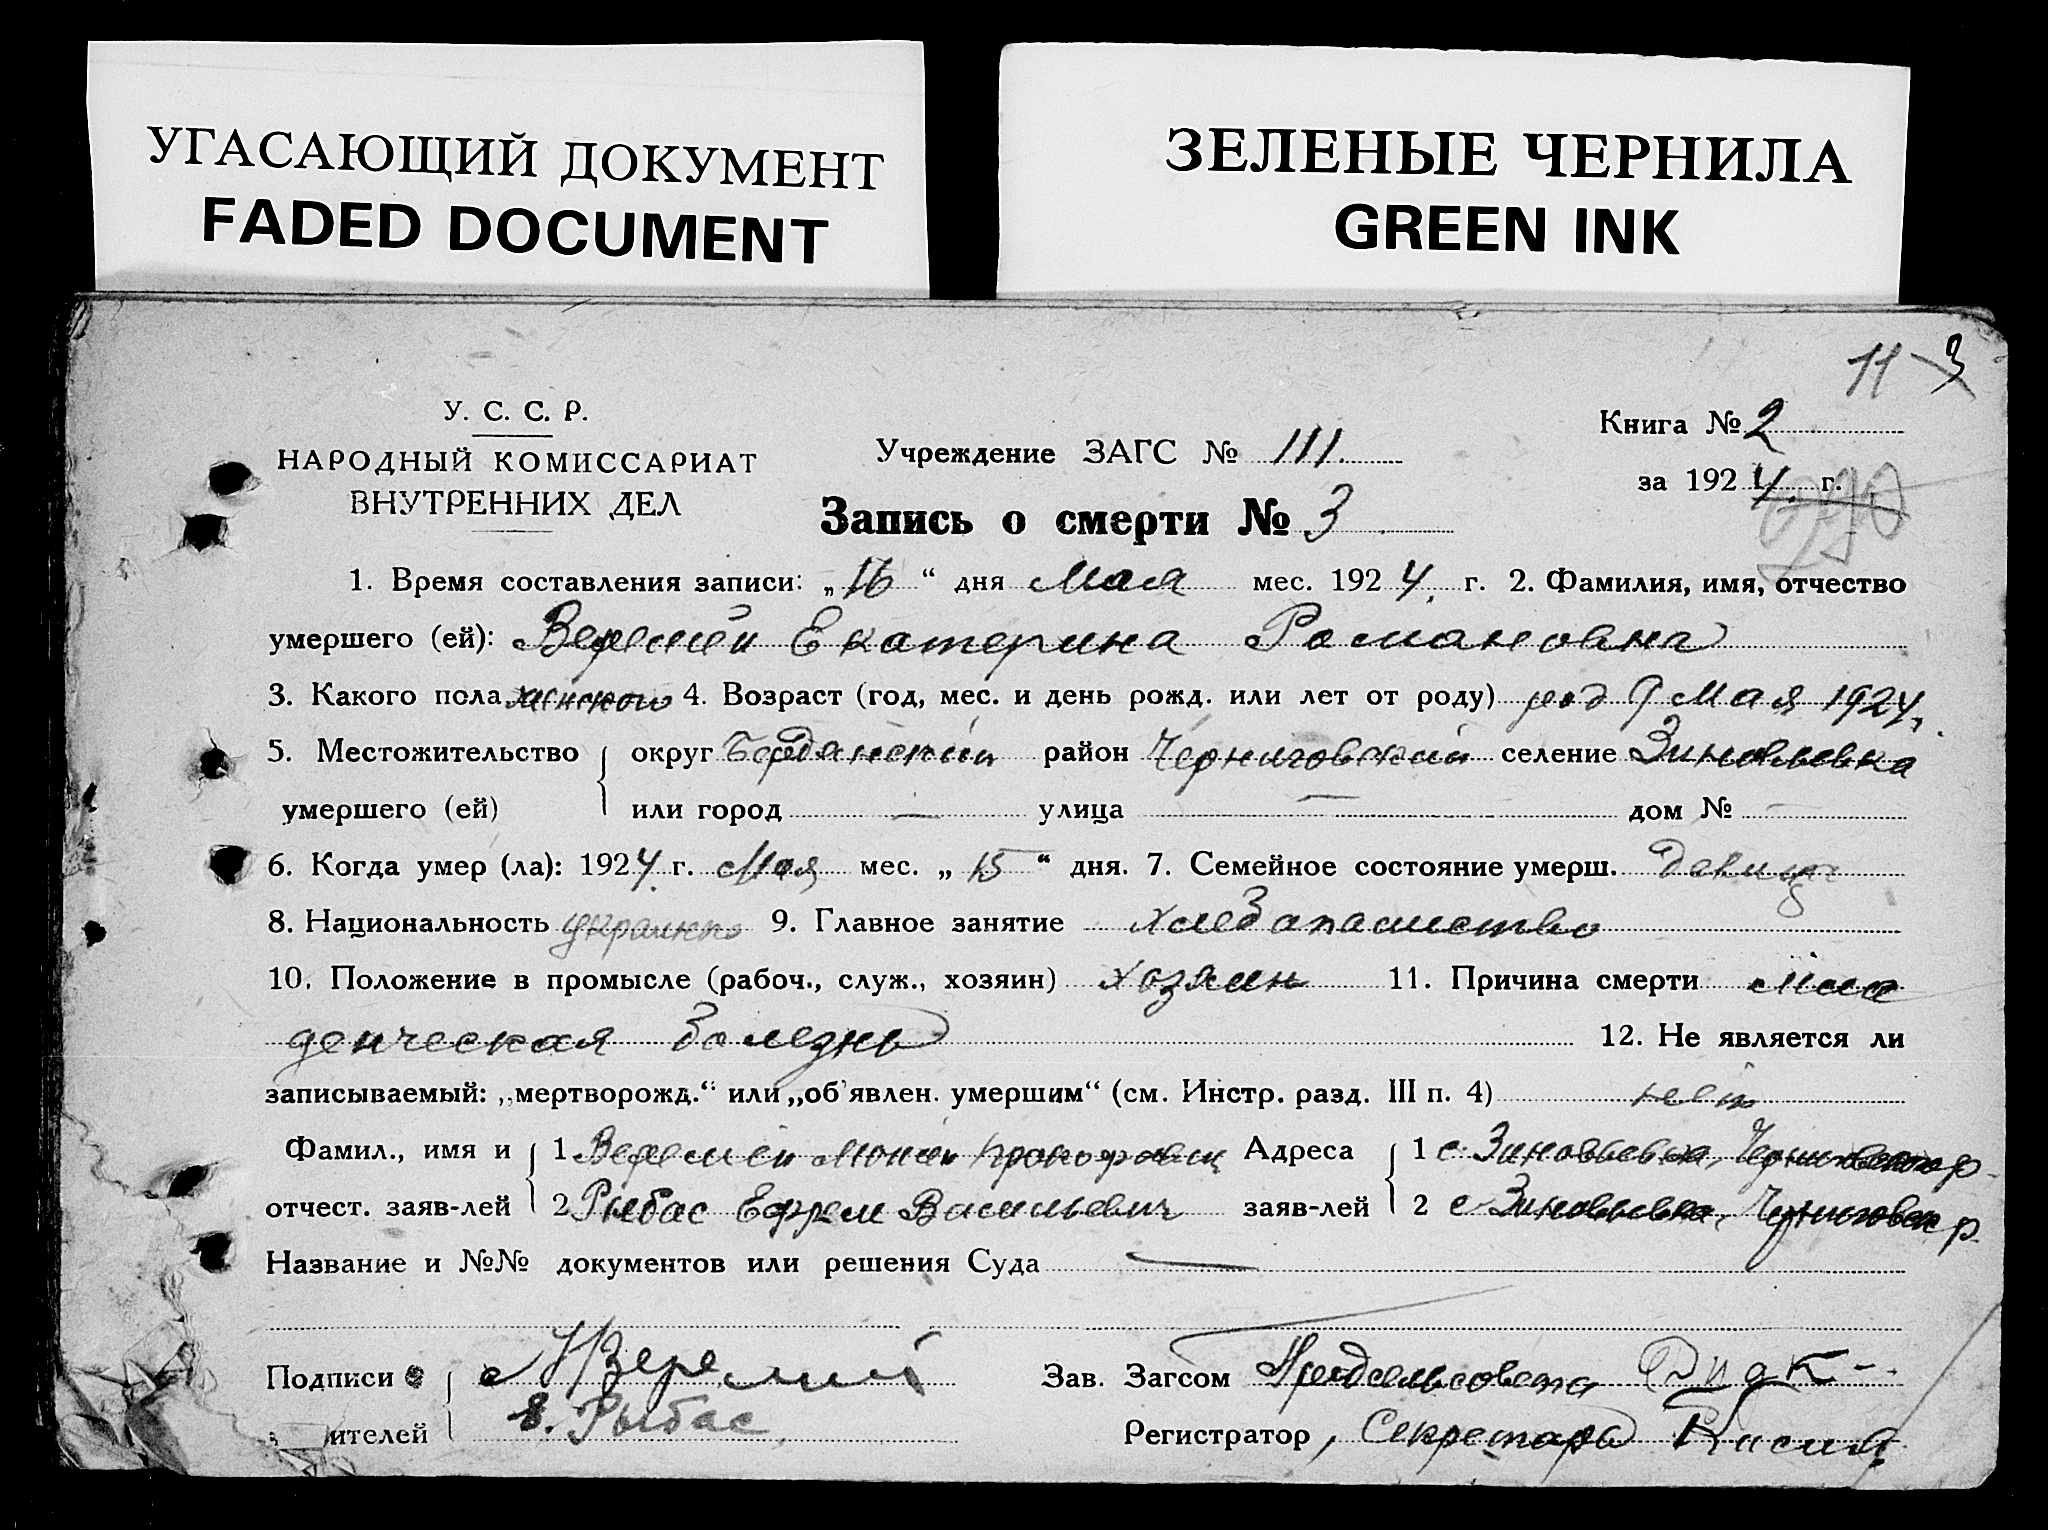 УГАСАЮЩИЙ ДОКУМЕНТ
FADED DOCUMENT
ЗЕЛЕНЫЕ ЧЕРНИЛА
GREEN INK
11 3
У. С. С. Р.
НАРОДНЫЙ КОМИССАРИАТ
ВНУТРЕННИХ ДЕЛ
Учреждение ЗАГС № 111
Книга № 2
за 1924 г.
290
Запись о смерти № 3
1. Время составления записи: „16“ дня Мая мес. 1924 г. 2. Фамилия, имя, отчество
умершего (ей): Веремей Екатерина Романовна
3. Какого пола женского 4. Возраст (год, мес. и день рожд. или лет от роду) рожд 9 Мая 1924
5. Местожительство округ Бердянский район Черниговский селение Зиновьевка
умершего (ей) или город — улица — дом № —
6. Когда умер (ла): 1924 г. Мая мес. „15“ дня. 7. Семейное состояние умерш. девица
8. Национальность 9. Главное занятие хлебопашество
10. Положение в промысле (рабоч., служ., хозяин) хозяин 11. Причина смерти мла
денческая болезнь 12. Не является ли
записываемый: „мертворожд.“ или „об'явлен. умершим“ (см. Инстр. разд. III п. 4) нет
Фамил., имя и 1 Веремей Адреса 1 с. Зиновьевка,
отчест. заяв-лей 2 Рыбас Ефрем Васильевич заяв-лей 2 с. Зиновьевка, Черниговск р.
Название и №№ документов или решения Суда —
Подписи Веремий Зав. Загсом Предсельсовета
ителей Е. Рыбас Регистратор, Секретарь